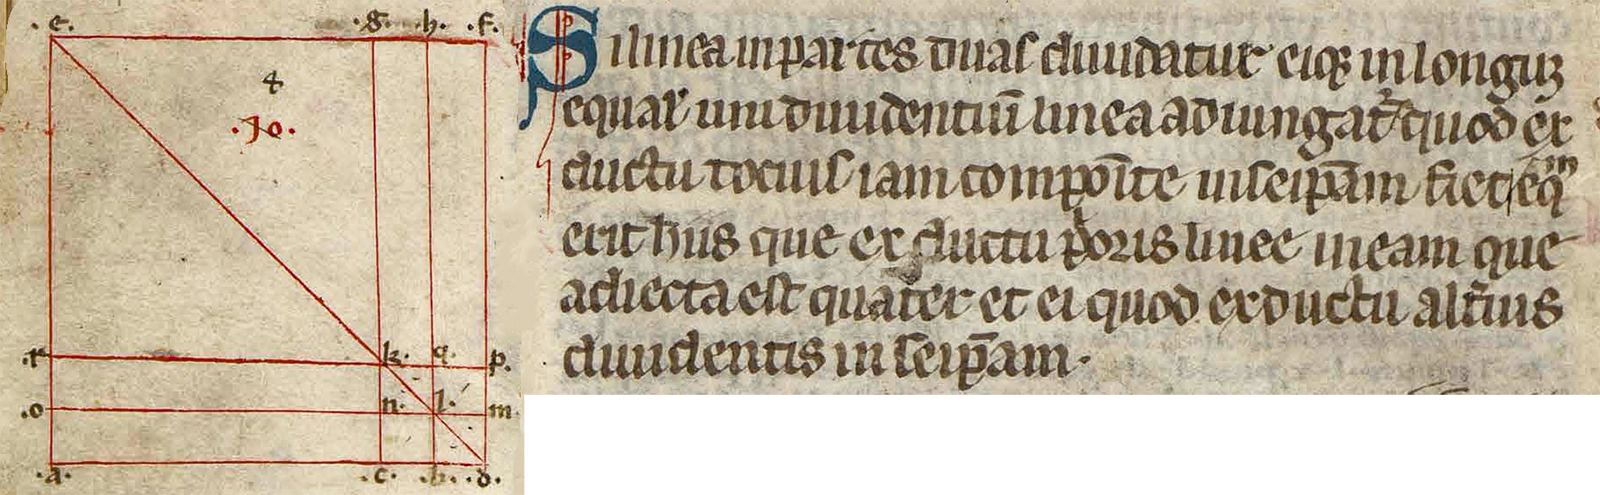 .e. .g. .h. .f.
4
.10.
.r. k. q. p.
.o n. l. m
.a. .c. .b. .d.
Si linea in partes duas diuidatur eiqꝫ in longuꝫ
equaꝉ uni diuidentiū linea adiungat᷑ quod ex
ductu tocius iam compoīte in seip̄am fiet eq̅ͫ
erit hiis que ex ductu p̓oris linee in eam que
adiecta est quater et ei quod ex ductu alt̓ius
diuidentis in seip̄am·